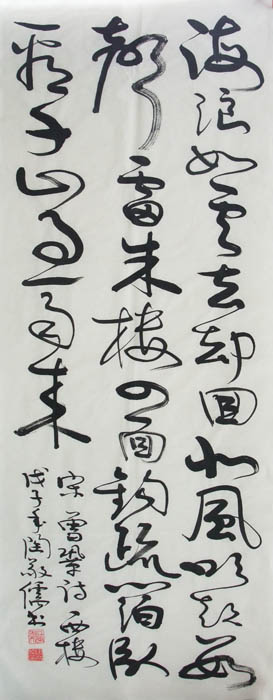 海浪如雲去却回北風吹起數
聲雷朱樓四面鈎疏箔臥
看千山急雨来
宋曾鞏詩西樓
戊子年陶敬儒书